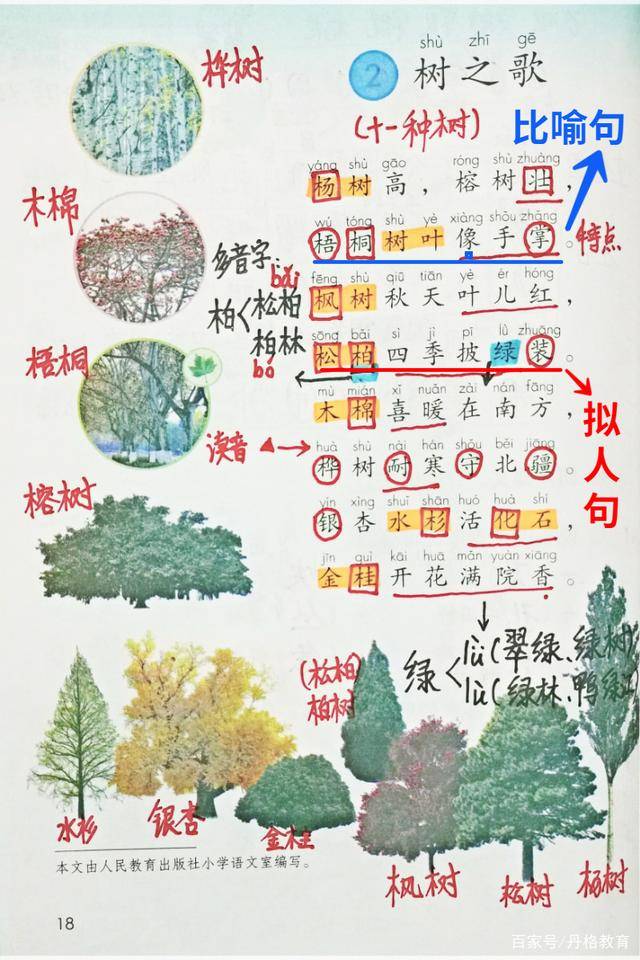 shù zhī gē
2 树之歌
桦树
(十一种树)
比喻句
yáng shù gāo róng shù zhuàng
杨树高，榕树壮，
木棉
wú tóng shù yè xiàng shǒu zhǎng
梧桐树叶像手掌。
特点
多音字：
bǎi
柏<松柏
柏林
bó
fēng shù qiū tiān yè ér hóng
枫树秋天叶儿红，
sōng bǎi sì jì pī lǜ zhuāng
松柏四季披绿装。
梧桐
mù mián xǐ nuǎn zài nán fāng
木棉喜暖在南方，
拟人句
读音
huà shù nài hán shǒu běi jiāng
桦树耐寒守北疆。
榕树
yín xìng shuǐ shān huó huà shí
银杏水杉活化石，
jīn guì kāi huā mǎn yuàn xiāng
金桂开花满院香。
绿<lǜ(翠绿、绿树)
lù(绿林、鸭绿江
(松柏)
柏树
水杉
银杏
金桂
枫树
松树
杨树
本文由人民教育出版社小学语文室编写。
18
百家号/丹格教育